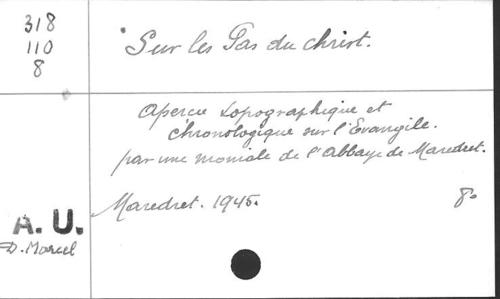 318
110
8
Sur les Pas du Christ.
Apercu topographique et
chronologique sur l'Evangile.
par une moniale de l'Abbaye de Maredret.
Maredret. 1945.
8°
A. U.
D. Marcel